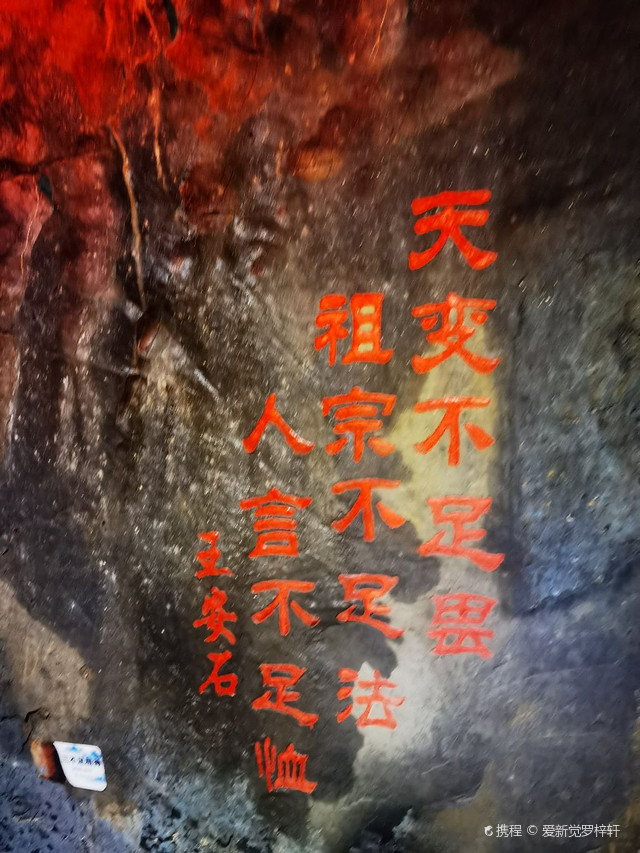 天变不足畏
祖宗不足法
人言不足恤
王安石
携程 © 爱新觉罗梓轩